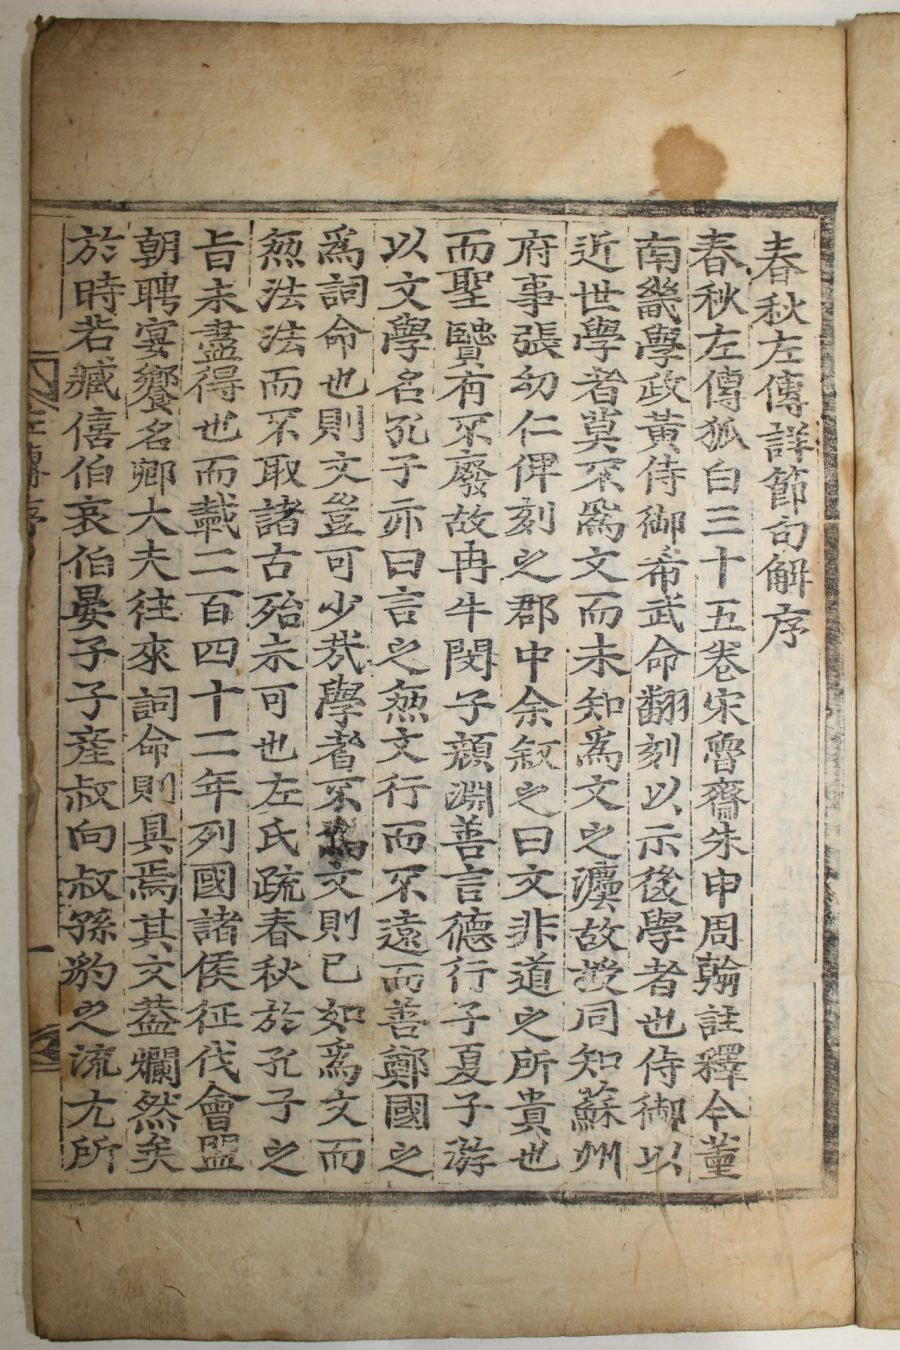 春秋左傳詳節句解序
春秋左傳狐白三十五卷宋魯齋朱申周翰註釋今董
南畿學政黃侍御希武命翻刻以示後學者也侍御以
近世學者莫不爲文而未知爲文之瀵故授同知蘇州
府事張幼仁俾刻之郡中余叙之曰文非道之所貴也
而聖贒有不廢故冉牛閔子顔淵善言德行子夏子游
以文學名孔子亦曰言之無文行而不遠而善鄭國之
爲詞命也則文豈可少㢤學者不爲文則已如爲文而
無法法而不取諸古殆未可也左氏疏春秋於孔子之
旨未盡得也而載二百四十二年列國諸侯征伐會盟
朝聘宴饗名卿大夫往來詞命則具焉其文葢爛然矣
於時若臧僖伯哀伯晏子子産叔向叔孫豹之流尤所
左傳序
一